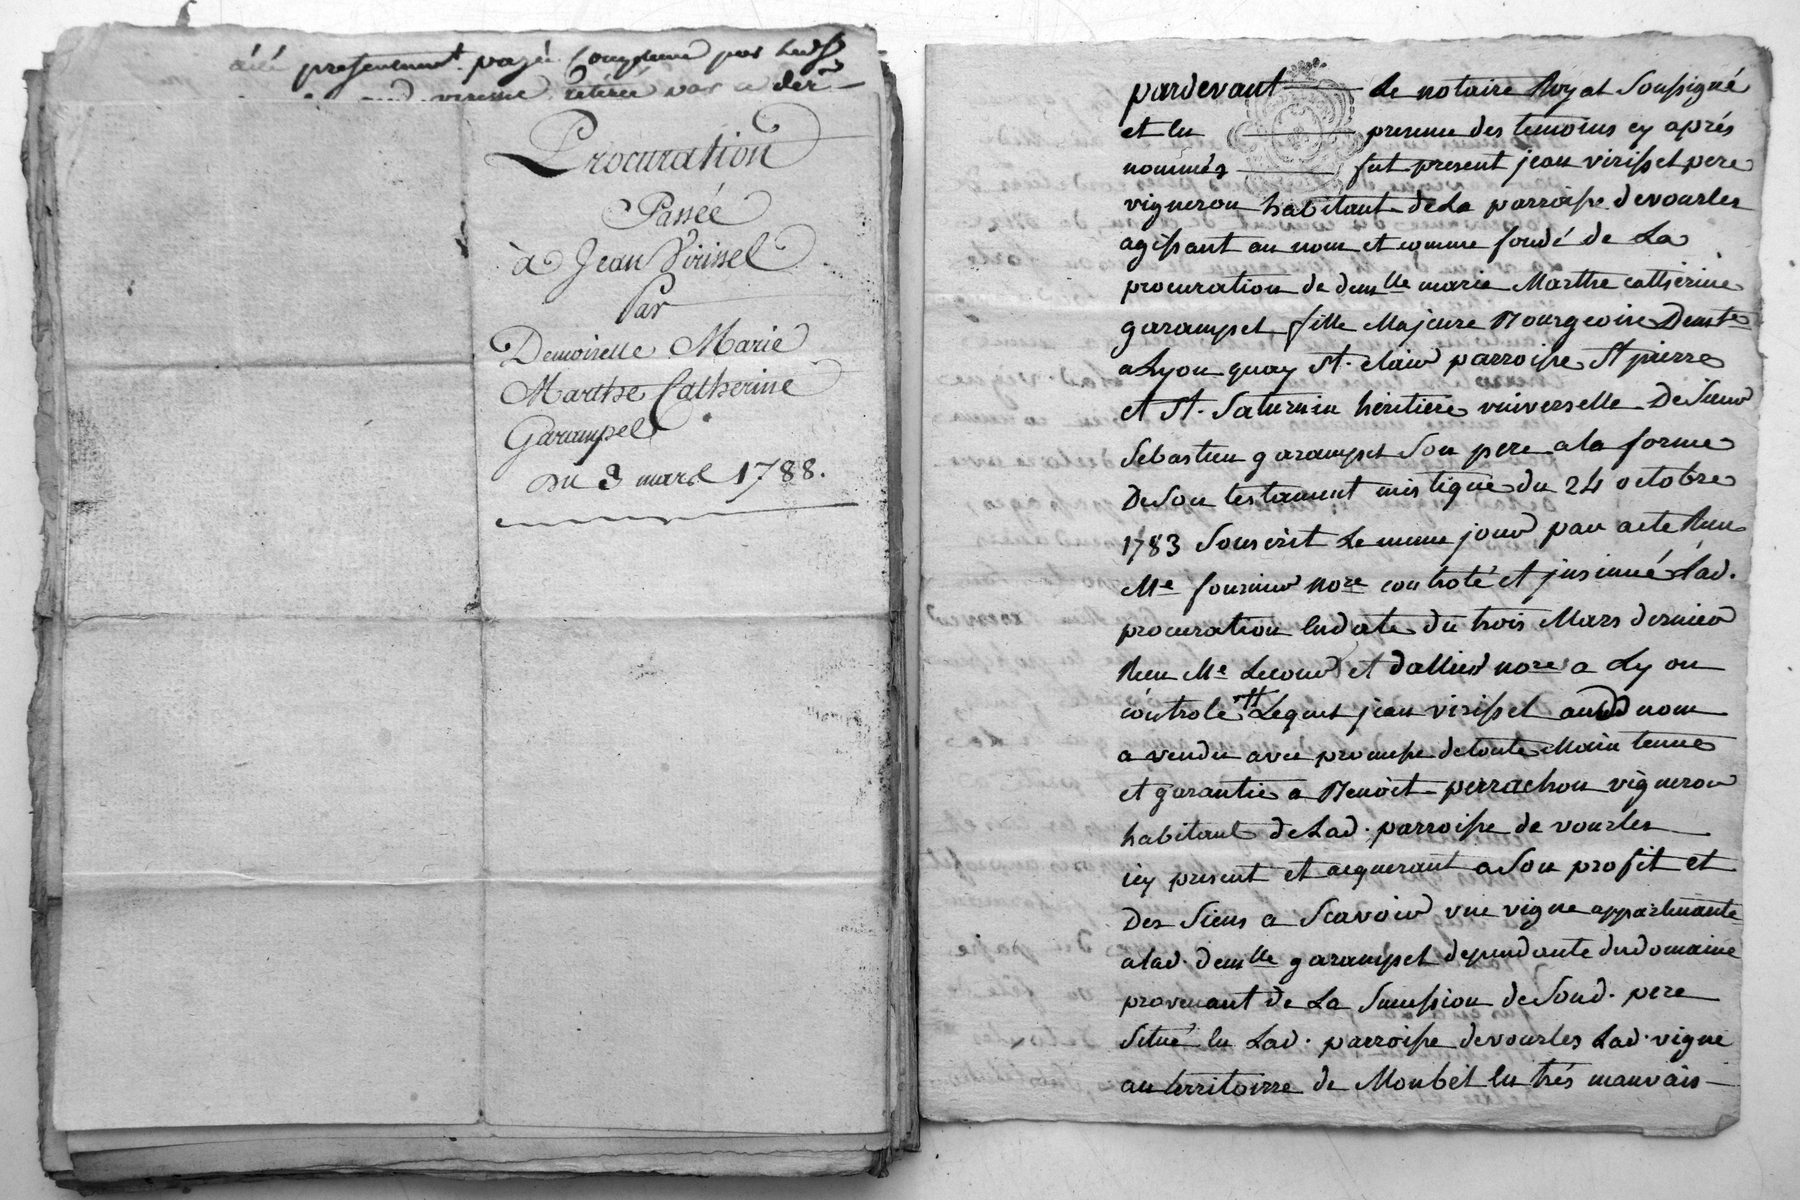 été presentement payé comptene par led.
et retirée par ce der
Procuration
Passée
à Jean Virissel
Par
Demoiselle Marie
Marthe Catherine
Garampel
Du 3 mars 1788.
pardevant Le notaire Royal Soussigné
et en presence des temoins cy aprés
nommés fut present jean virissel pere
vigneron habitant de La parroisse devourles
agissant au nom et comme fondé de La
procuration de demlle marie Marthe catherine
garampel fille Majeure Bourgeoise Demte
a Lyon quay St. clair parroisse St pierre
et St. Saturnin héritiere universelle De Sieur
Sebastien garampel Son pere a la forme
De Son testament mistique du 24 octobre
1783 Souscrit Le meme jour par acte Reçu
Me fournier nore controlé et jnsinué Lad.
procuration en date du trois Mars dernier
Reçu Me Lecour et dallier nores a Lyon
controlé Lequel jean virissel aud nom
a vendu avec promesse de toute Maintenue
et garantie a Benoit perrachon vigneron
habitant de Lad. parroisse de vourles
icy present et acquerant a Son profit et
Des Siens a Scavoir une vigne appartenante
a lad. demlle garampel dependante du domaine
provenant de La Sucession de Sond. pere
Situé en Lad. parroisse devourles Lad. vigne
au territoirre de Monbel en trés mauvais